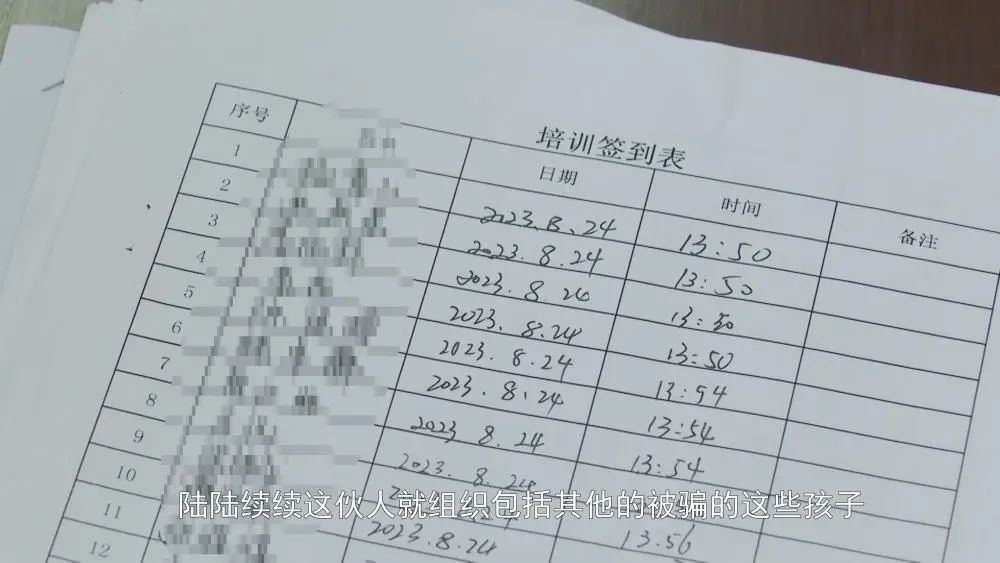 培训签到表
序号 日期 时间 备注
1 2023.8.24 13:50
2 2023.8.24 13:50
3 2023.8.24 13:50
4 2023.8.24 13:50
5 2023.8.24 13:54
6 2023.8.24 13:54
7 2023 8.24 13:54
8 2023.8.24
9 13.56
10 2023.8.24
11
12
陆陆续续这伙人就组织包括其他的被骗的这些孩子